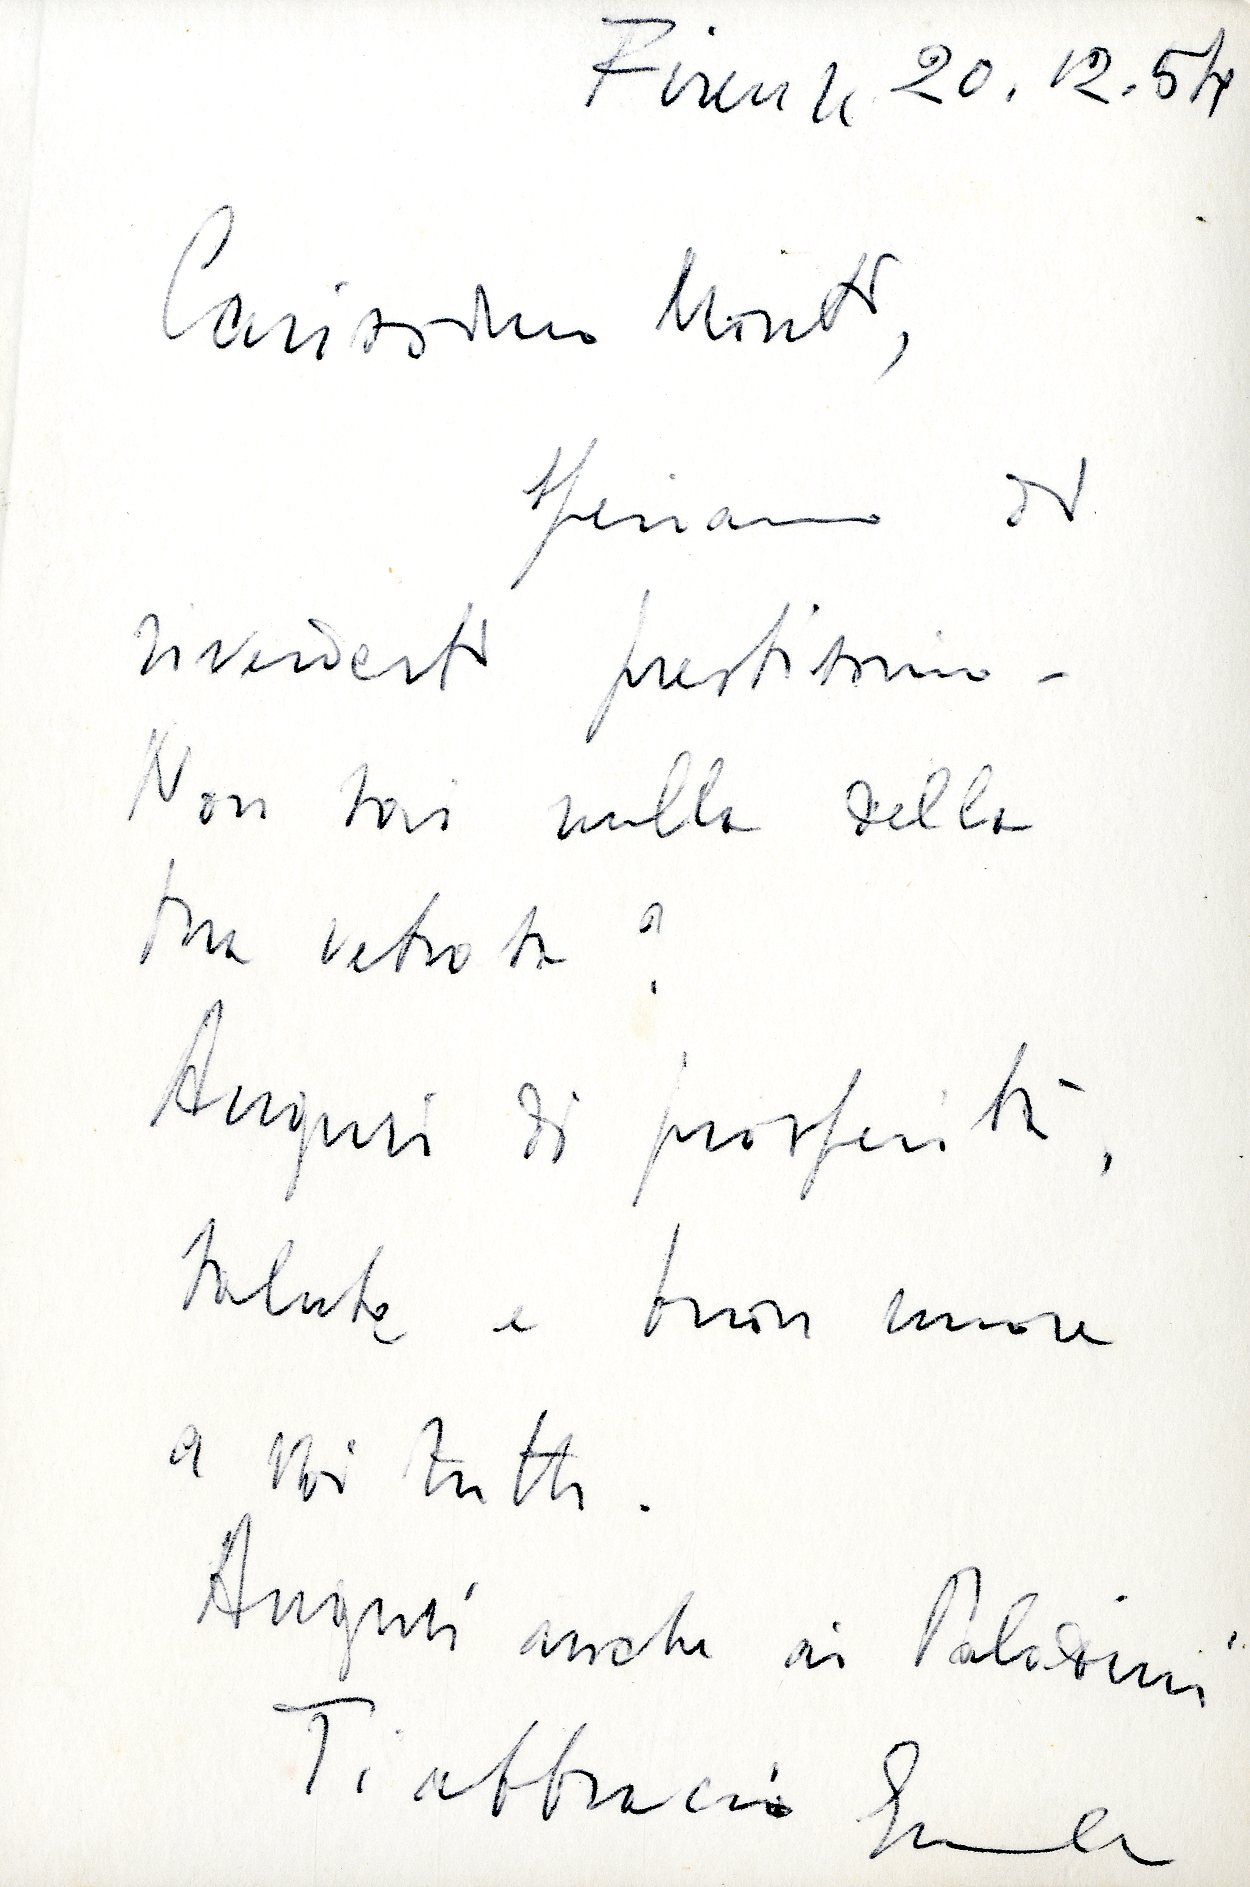 Firenze 20.12.54
Carissimo Monti,
speriamo di
rivederti prestissimo -
Non sai nulla della
tua vetrata?
Auguri di prosperità,
salute e buon umore
a voi tutti.
Auguri anche ai Paladini
Ti abbraccio